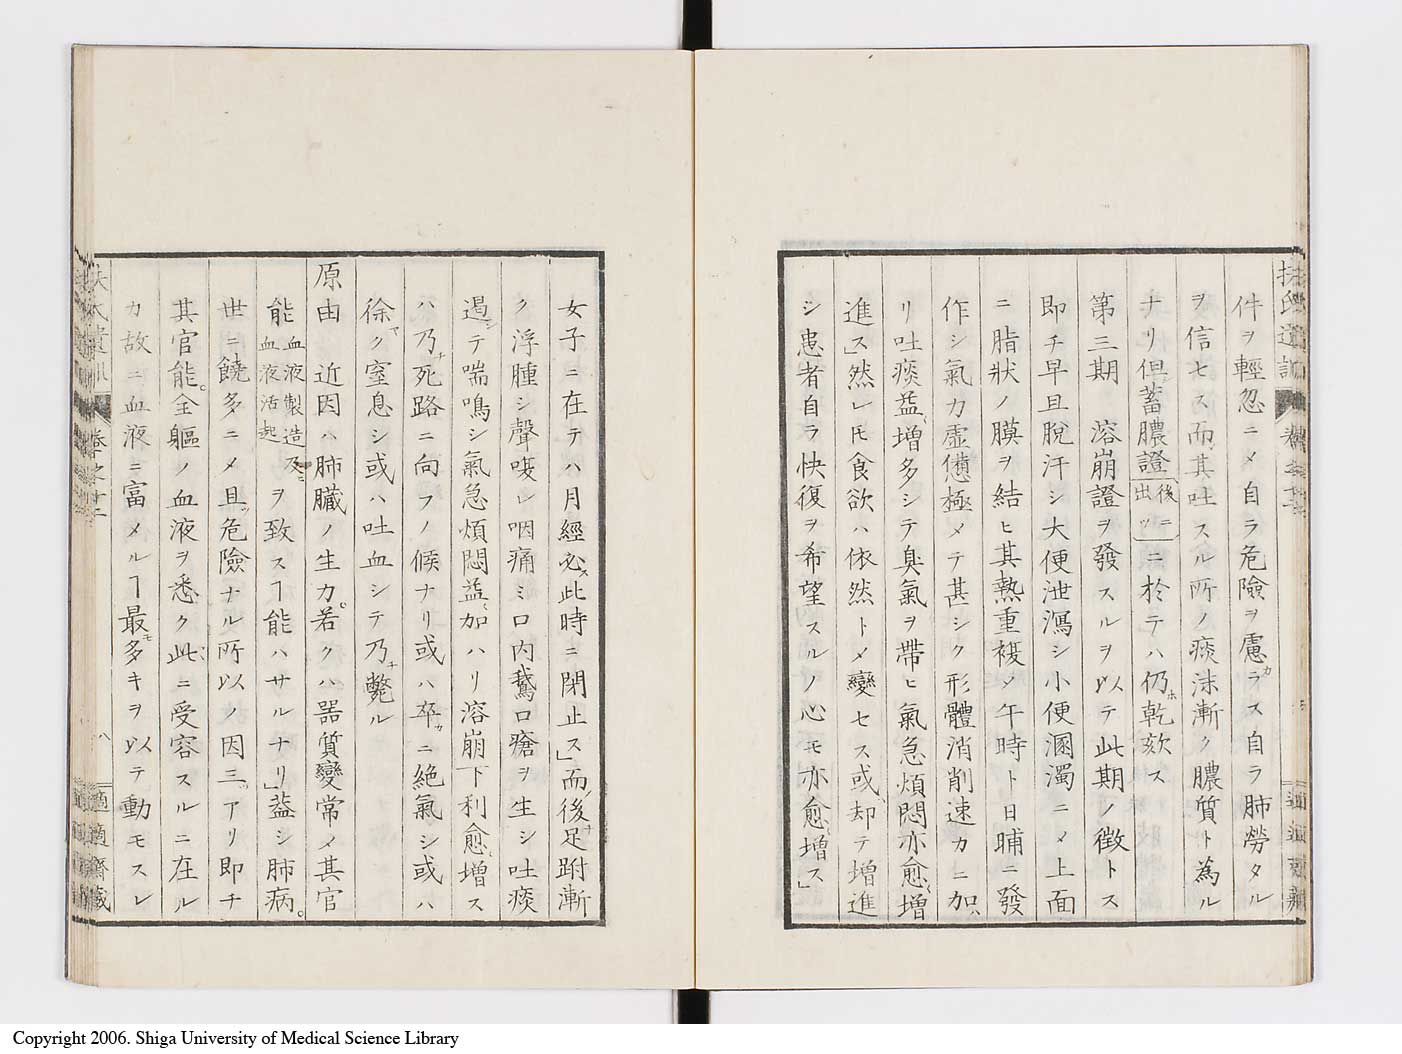 件ヲ輕忽ニメ自ラ危險ヲ慮カラス自ラ肺勞タル
ヲ信セス而其吐スル所ノ痰沫漸ク膿質ト為ル
ナリ但蓄膿證後ニ出ツニ於テハ仍ホ乾欬ス
第三期 溶崩證ヲ發スルヲ以テ此期ノ徵トス
即チ早旦脫汗シ大便泄瀉シ小便溷濁ニメ上面
ニ脂狀ノ膜ヲ結ヒ其熱重複メ午時ト日晡ニ發
作シ氣力虛憊極メテ甚シク形體消削速カニ加ハ
リ吐痰益増多シテ臭氣ヲ帶ヒ氣急煩悶亦愈増
進ス」然レ𪜈食欲ハ依然トメ變セス或却テ増進
シ患者自ラ快復ヲ希望スルノ心モ亦愈増ス」
女子ニ在テハ月經必ス此時ニ閉止ス」而後足跗漸
ク浮腫シ聲嗄レ咽痛ミ口內鵞口瘡ヲ生シ吐痰
遏シテ喘鳴シ氣急煩悶益加ハリ溶崩下利愈増ス
ハ乃チ死路ニ向フノ候ナリ或ハ卒カニ絕氣シ或ハ
徐ク窒息シ或ハ吐血シテ乃チ斃ル
原由 近因ハ肺臟ノ生力若クハ器質變常メ其官
能血液製造及ニ血液活起ヲ致スヿ能ハサルナリ」蓋シ肺病。
世ニ饒多ニメ且危險ナル所以ノ因三アリ即チ
其官能。全軀ノ血液ヲ悉ク此ニ受容スルニ在ル
カ故ニ血液ニ富メルヿ最モ多キヲ以テ動モスレ
扶氏遺訓
卷之十二
八
適適齋藏
Copyright 2006. Shiga University of Medical Science Library